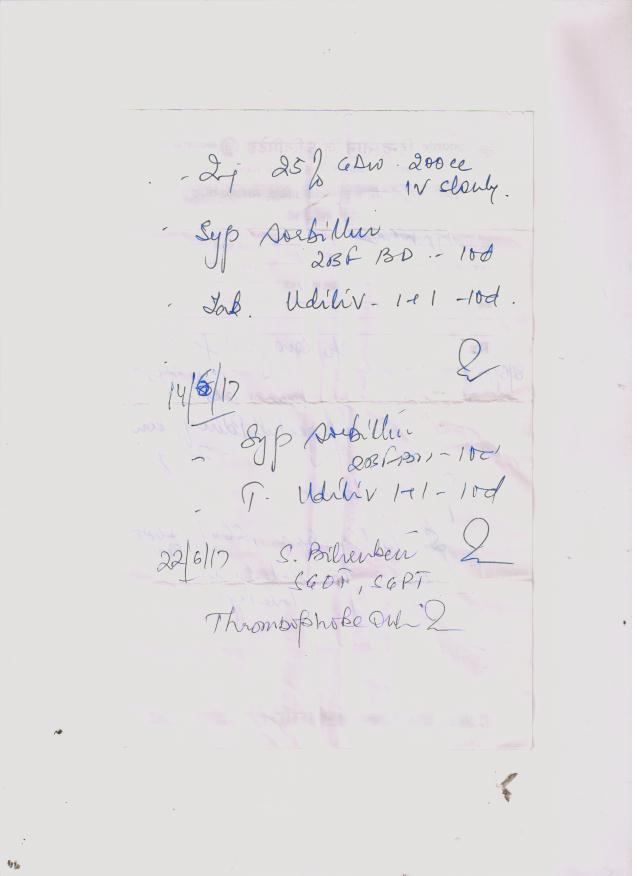 - Inj 25% GDW. 200cc
IV slowly.
Syp Sorbilin
2BF BD - 10d
Tab. Udiliv - 1+1 - 10d.
14/6/17
Syp Sorbilin
2BF BD - 10d
T. Udiliv 1+1 - 10d
22/6/17 S. Bilirubin
SGOT, SGPT
Thrombophobe Oint